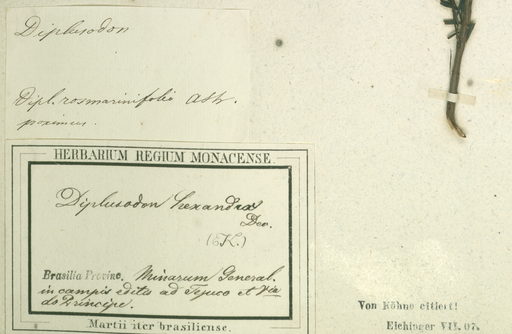 Diplusodon
Dipl. rosmarinifolio ASH.
proximus.
HERBARIUM REGIUM MONACENSE.
Diplusodon hexandrus
Dec.
(K.)
Brasilia Provinc. Minarum General.
in campis editis ad Tejuco et Va
do Principe.
Martii iter brasiliense.
Von Köhne citiert!
Eichinger VII. 07.